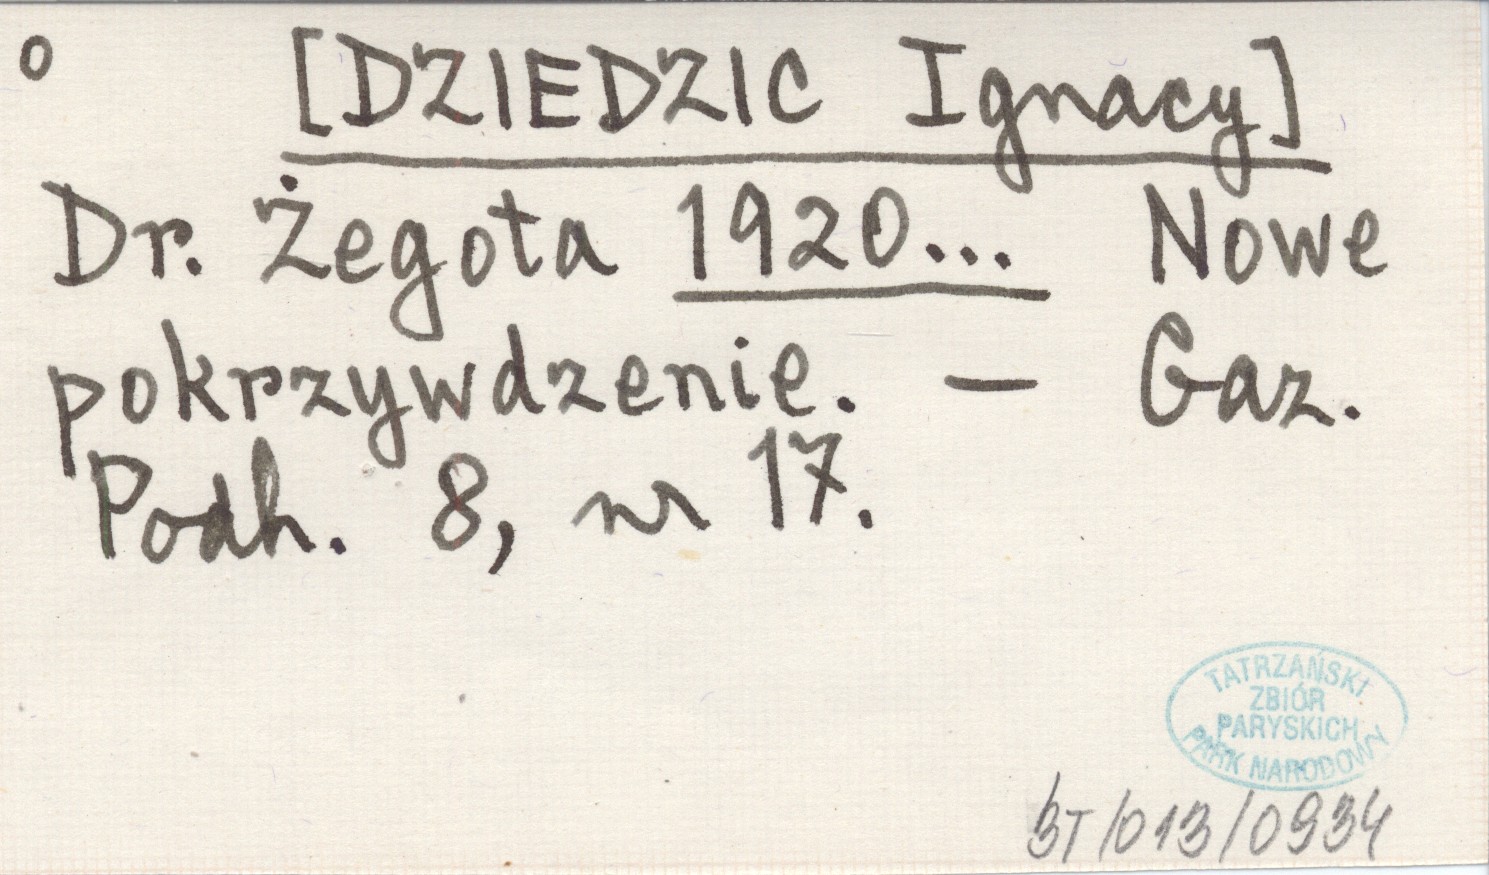 o [DZIEDZIC Ignacy]
Dr. Żegota 1920... Nowe
pokrzywdzenie. — Gaz.
Podh. 8, nr 17.
TATRZAŃSKI
ZBIÓR
PARYSKICH
PARK NARODOWY
BT/013/0934